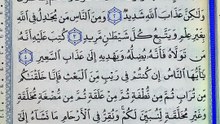 وَلَٰكِنَّ عَذَابَ ٱللَّهِ شَدِيدٌ ٢ وَمِنَ ٱلنَّاسِ مَن يُجَٰدِلُ فِى ٱللَّهِ
بِغَيْرِ عِلْمٍ وَيَتَّبِعُ كُلَّ شَيْطَٰنٍ مَّرِيدٍ ٣ كُتِبَ عَلَيْهِ أَنَّهُۥ
مَن تَوَلَّاهُ فَأَنَّهُۥ يُضِلُّهُۥ وَيَهْدِيهِ إِلَىٰ عَذَابِ ٱلسَّعِيرِ ٤
يَٰٓأَيُّهَا ٱلنَّاسُ إِن كُنتُمْ فِى رَيْبٍ مِّنَ ٱلْبَعْثِ فَإِنَّا خَلَقْنَٰكُم
مِّن تُرَابٍ ثُمَّ مِن نُّطْفَةٍ ثُمَّ مِنْ عَلَقَةٍ ثُمَّ مِن مُّضْغَةٍ مُّخَلَّقَةٍ
وَغَيْرِ مُخَلَّقَةٍ لِّنُبَيِّنَ لَكُمْ وَنُقِرُّ فِى ٱلْأَرْحَامِ مَا نَشَآءُ إِلَىٰٓ